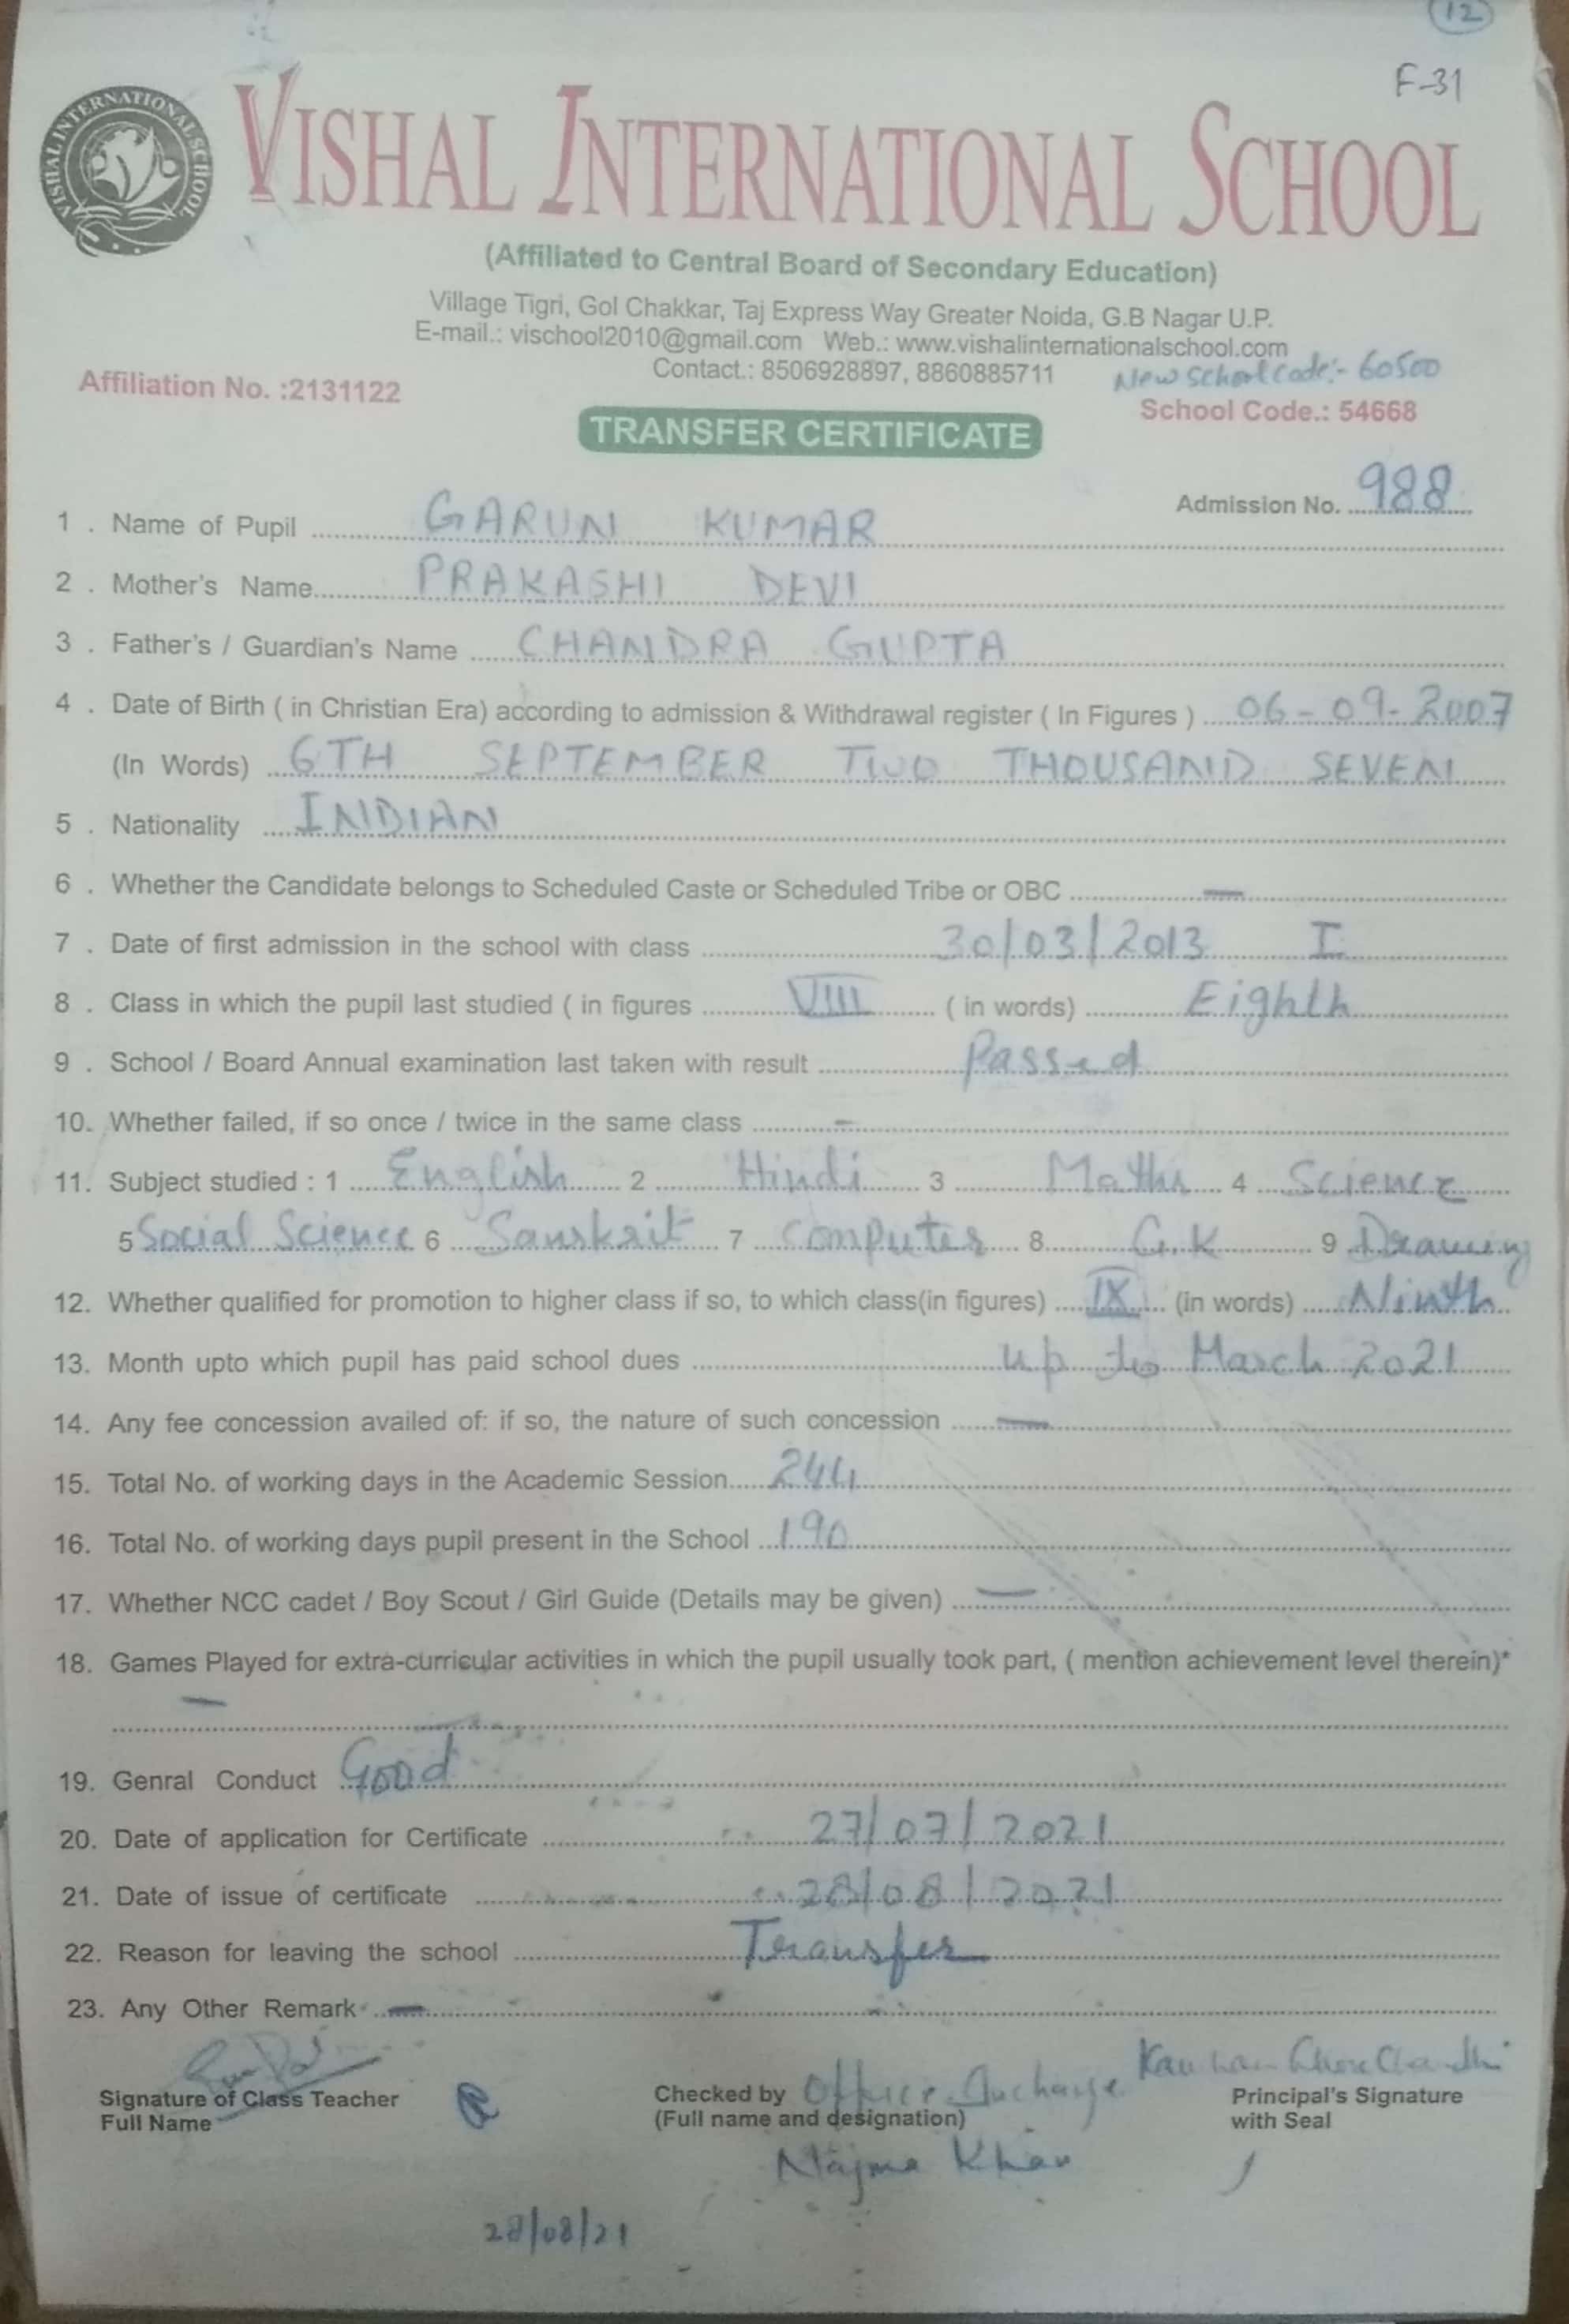 12
F-31
VISHAL INTERNATIONAL SCHOOL
VISHAL INTERNATIONAL SCHOOL
(Affiliated to Central Board of Secondary Education)
Village Tigri, Gol Chakkar, Taj Express Way Greater Noida, G.B Nagar U.P.
E-mail.: vischool2010@gmail.com Web.: www.vishalinternationalschool.com
Contact.: 8506928897, 8860885711 New School code:- 60500
Affiliation No. :2131122 School Code.: 54668
TRANSFER CERTIFICATE
Admission No. 988
1 . Name of Pupil GARUN KUMAR
2 . Mother's Name PRAKASHI DEVI
3 . Father's / Guardian's Name CHANDRA GUPTA
4 . Date of Birth ( in Christian Era) according to admission & Withdrawal register ( In Figures ) 06-09-2007
(In Words) 6TH SEPTEMBER TWO THOUSAND SEVEN
5 . Nationality INDIAN
6 . Whether the Candidate belongs to Scheduled Caste or Scheduled Tribe or OBC —
7 . Date of first admission in the school with class 30/03/2013 I
8 . Class in which the pupil last studied ( in figures VIII ( in words) Eighth
9 . School / Board Annual examination last taken with result Passed
10. Whether failed, if so once / twice in the same class -
11. Subject studied : 1 English 2 Hindi 3 Maths 4 Science
5 Social Science 6 Sanskrit 7 Computer 8 G.K 9 Drawing
12. Whether qualified for promotion to higher class if so, to which class(in figures) IX (in words) Ninth
13. Month upto which pupil has paid school dues up to March 2021
14. Any fee concession availed of: if so, the nature of such concession —
15. Total No. of working days in the Academic Session 244
16. Total No. of working days pupil present in the School 190
17. Whether NCC cadet / Boy Scout / Girl Guide (Details may be given) —
18. Games Played for extra-curricular activities in which the pupil usually took part, ( mention achievement level therein)*
—
19. Genral Conduct Good
20. Date of application for Certificate 27/07/2021
21. Date of issue of certificate 28/08/2021
22. Reason for leaving the school Transfer
23. Any Other Remark —
Signature of Class Teacher Checked by Office Incharge Principal's Signature
Full Name (Full name and designation) with Seal
Najma Khan
28/08/21